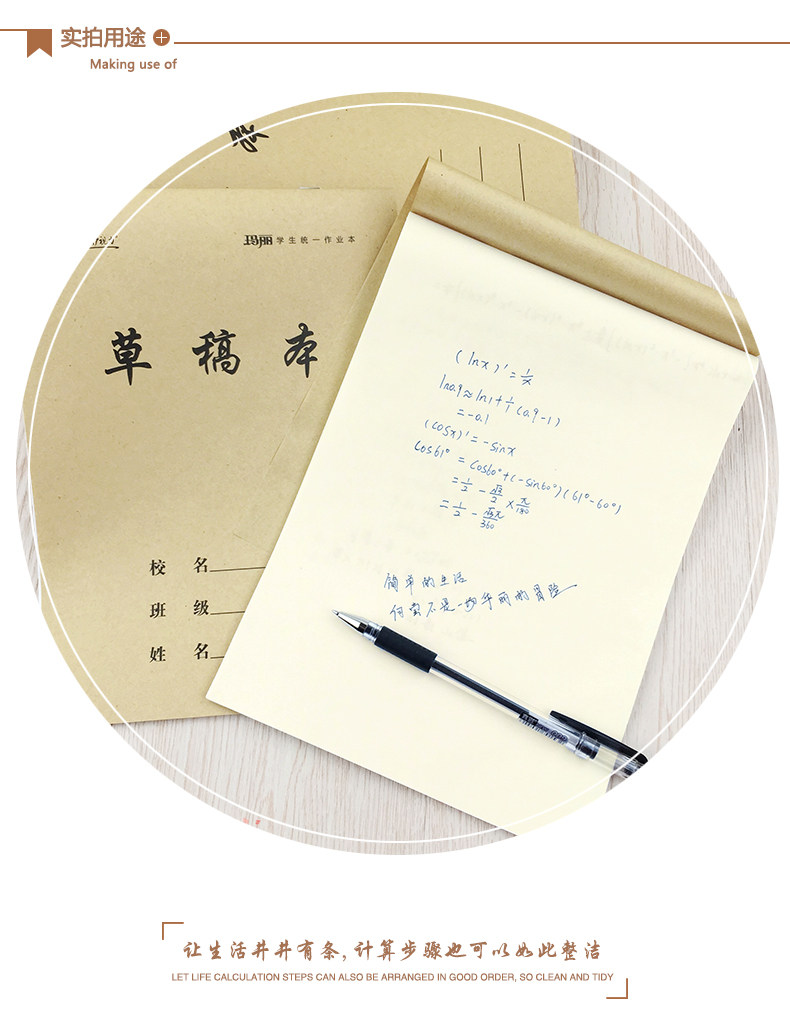 实拍用途
Making use of
玛丽 学生统一作业本
草稿本
校 名
班 级
姓 名
(lnx)'=1/x
ln0.9≈ln1+1/1(0.9-1)
=-0.1
(cosx)'=-sinx
cos61°=cos60°+(-sin60°)(61°-60°)
=1/2-√3/2×π/180
=1/2-√3π/360
简单的生活
何尝不是一场华丽的冒险
让生活井井有条,计算步骤也可以如此整洁
LET LIFE CALCULATION STEPS CAN ALSO BE ARRANGED IN GOOD ORDER, SO CLEAN AND TIDY